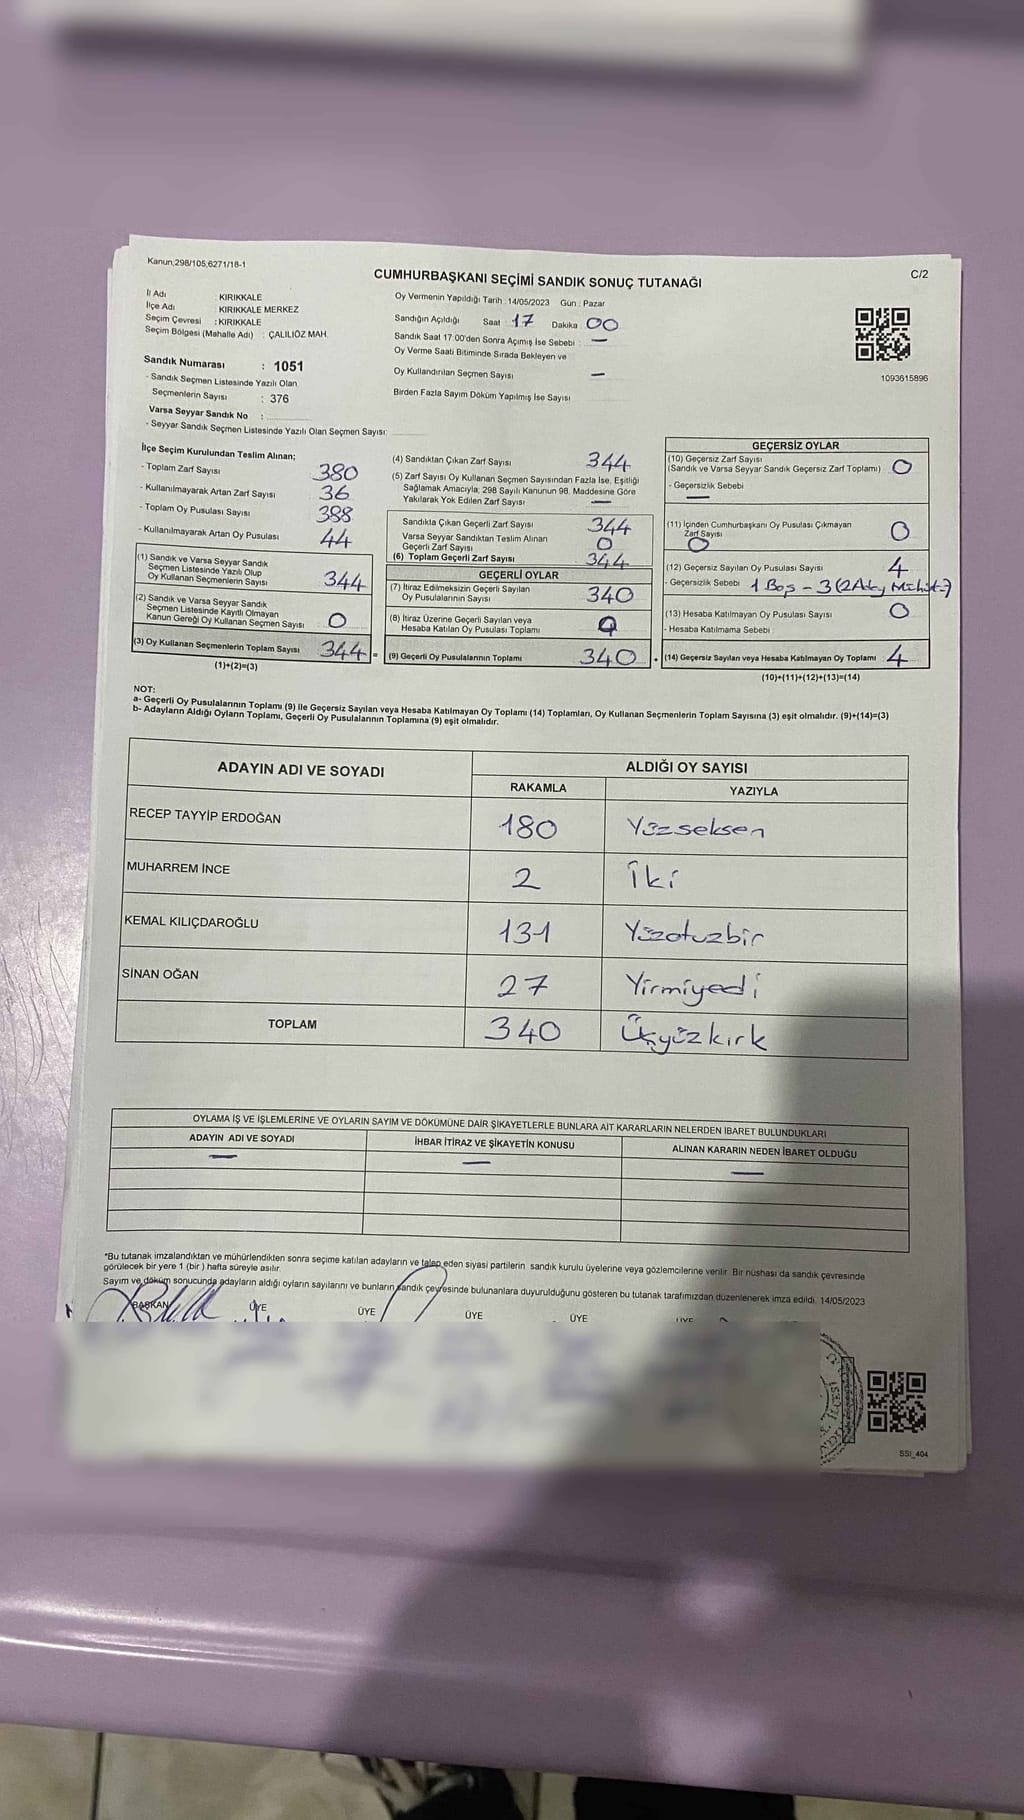 Kanun;298/105;6271/18-1
CUMHURBAŞKANI SEÇİMİ SANDIK SONUÇ TUTANAĞI
C/2
İl Adı : KIRIKKALE
İlçe Adı : KIRIKKALE MERKEZ
Seçim Çevresi : KIRIKKALE
Seçim Bölgesi (Mahalle Adı) : ÇALILIÖZ MAH.
Sandık Numarası : 1051
- Sandık Seçmen Listesinde Yazılı Olan
Seçmenlerin Sayısı : 376
Varsa Seyyar Sandık No :
- Seyyar Sandık Seçmen Listesinde Yazılı Olan Seçmen Sayısı:
Oy Vermenin Yapıldığı Tarih : 14/05/2023 Gün : Pazar
Sandığın Açıldığı Saat 17 Dakika 00
Sandık Saat 17:00'den Sonra Açımış İse Sebebi : —
Oy Verme Saati Bitiminde Sırada Bekleyen ve
Oy Kullandırılan Seçmen Sayısı —
Birden Fazla Sayım Döküm Yapılmış İse Sayısı
1093615896
İlçe Seçim Kurulundan Teslim Alınan;
- Toplam Zarf Sayısı 380
- Kullanılmayarak Artan Zarf Sayısı 36
- Toplam Oy Pusulası Sayısı 388
- Kullanılmayarak Artan Oy Pusulası 44
(1) Sandık ve Varsa Seyyar Sandık
Seçmen Listesinde Yazılı Olup
Oy Kullanan Seçmenlerin Sayısı 344
(2) Sandık ve Varsa Seyyar Sandık
Seçmen Listesinde Kayıtlı Olmayan
Kanun Gereği Oy Kullanan Seçmen Sayısı 0
(3) Oy Kullanan Seçmenlerin Toplam Sayısı 344 =
(1)+(2)=(3)
(4) Sandıktan Çıkan Zarf Sayısı 344
(5) Zarf Sayısı Oy Kullanan Seçmen Sayısından Fazla İse, Eşitliği
Sağlamak Amacıyla; 298 Sayılı Kanunun 98. Maddesine Göre
Yakılarak Yok Edilen Zarf Sayısı —
Sandıkla Çıkan Geçerli Zarf Sayısı 344
Varsa Seyyar Sandıktan Teslim Alınan
Geçerli Zarf Sayısı 0
(6) Toplam Geçerli Zarf Sayısı 344
GEÇERLİ OYLAR
(7) İtiraz Edilmeksizin Geçerli Sayılan
Oy Pusulalarının Sayısı 340
(8) İtiraz Üzerine Geçerli Sayılan veya
Hesaba Katılan Oy Pusulası Toplamı 0
(9) Geçerli Oy Pusulalarının Toplamı 340
GEÇERSİZ OYLAR
(10) Geçersiz Zarf Sayısı
(Sandık ve Varsa Seyyar Sandık Geçersiz Zarf Toplamı) 0
- Geçersizlik Sebebi
—
(11) İçinden Cumhurbaşkanı Oy Pusulası Çıkmayan
Zarf Sayısı 0
0
(12) Geçersiz Sayılan Oy Pusulası Sayısı 4
- Geçersizlik Sebebi 1 Boş - 3 (2
(13) Hesaba Katılmayan Oy Pusulası Sayısı 0
- Hesaba Katılmama Sebebi
(14) Geçersiz Sayılan veya Hesaba Katılmayan Oy Toplamı 4
(10)+(11)+(12)+(13)=(14)
NOT:
a- Geçerli Oy Pusulalarının Toplamı (9) ile Geçersiz Sayılan veya Hesaba Katılmayan Oy Toplamı (14) Toplamları, Oy Kullanan Seçmenlerin Toplam Sayısına (3) eşit olmalıdır. (9)+(14)=(3)
b- Adayların Aldığı Oyların Toplamı, Geçerli Oy Pusulalarının Toplamına (9) eşit olmalıdır.
ADAYIN ADI VE SOYADI
ALDIĞI OY SAYISI
RAKAMLA YAZIYLA
RECEP TAYYİP ERDOĞAN 180 Yüzseksen
MUHARREM İNCE 2 İki
KEMAL KILIÇDAROĞLU 131 Yüzotuzbir
SİNAN OĞAN 27 Yirmiyedi
TOPLAM 340 Üçyüzkırk
OYLAMA İŞ VE İŞLEMLERİNE VE OYLARIN SAYIM VE DÖKÜMÜNE DAİR ŞİKAYETLERLE BUNLARA AİT KARARLARIN NELERDEN İBARET BULUNDUKLARI
ADAYIN ADI VE SOYADI İHBAR İTİRAZ VE ŞİKAYETİN KONUSU ALINAN KARARIN NEDEN İBARET OLDUĞU
— — —
*Bu tutanak imzalandıktan ve mühürlendikten sonra seçime katılan adayların ve talep eden siyasi partilerin sandık kurulu üyelerine veya gözlemcilerine verilir. Bir nüshası da sandık çevresinde
görülecek bir yere 1 (bir ) hafta süreyle asılır.
Sayım ve döküm sonucunda adayların aldığı oyların sayılarını ve bunların sandık çevresinde bulunanlara duyurulduğunu gösteren bu tutanak tarafımızdan düzenlenerek imza edildi. 14/05/2023
BAŞKAN ÜYE ÜYE ÜYE ÜYE ÜYE
SSI_404